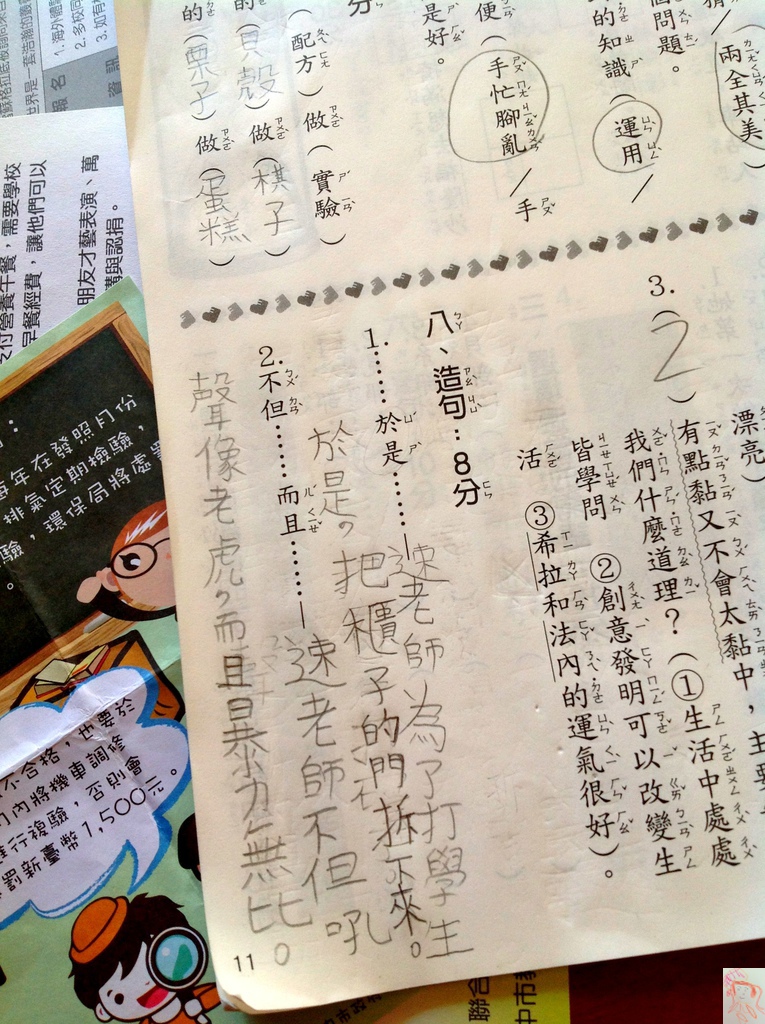 兩全其美
個問題。
的知識(運用)/
便(手忙腳亂/手
是好。
分
(配方)做(實驗)
的(貝殼)做(棋子)
的(栗子)做(蛋糕)
漂亮)
3.(2)有點黏又不會太黏中,主要
我們什麼道理?(①生活中處處
皆學問 ②創意發明可以改變生
活 ③希拉和法內的運氣很好)。
八、造句:8分
1.……於是……—速老師為了打學生
於是,把櫃子的門拆下來。
2.不但……而且……—速老師不但吼
聲像老虎,而且暴力無比。
11
付營養午餐,需要學校
早餐經費,讓他們可以
朋友才藝表演、萬
購與認捐。
報名
資訊
1. 海外體
2. 多校同
3. 如有
年在發照月份
排氣定期檢驗,
驗,環保局將處
不合格,也要於
內將機車調修
進行複驗,否則會
罰新臺幣1,500元。
聯合
中市